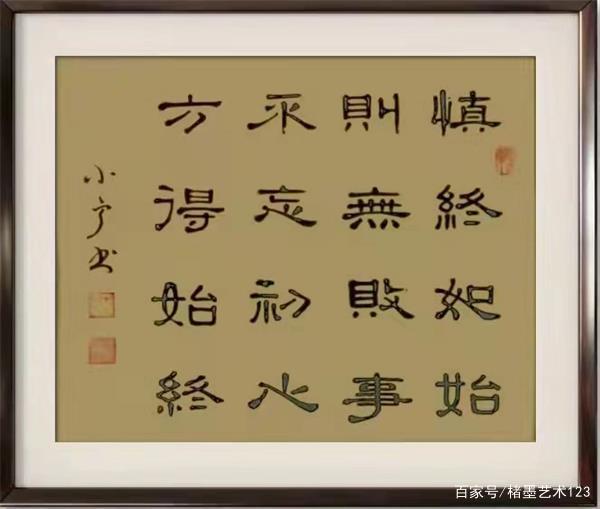 慎終如始
則無敗事
不忘初心
方得始終
小宁书
百家号/楮墨艺术123